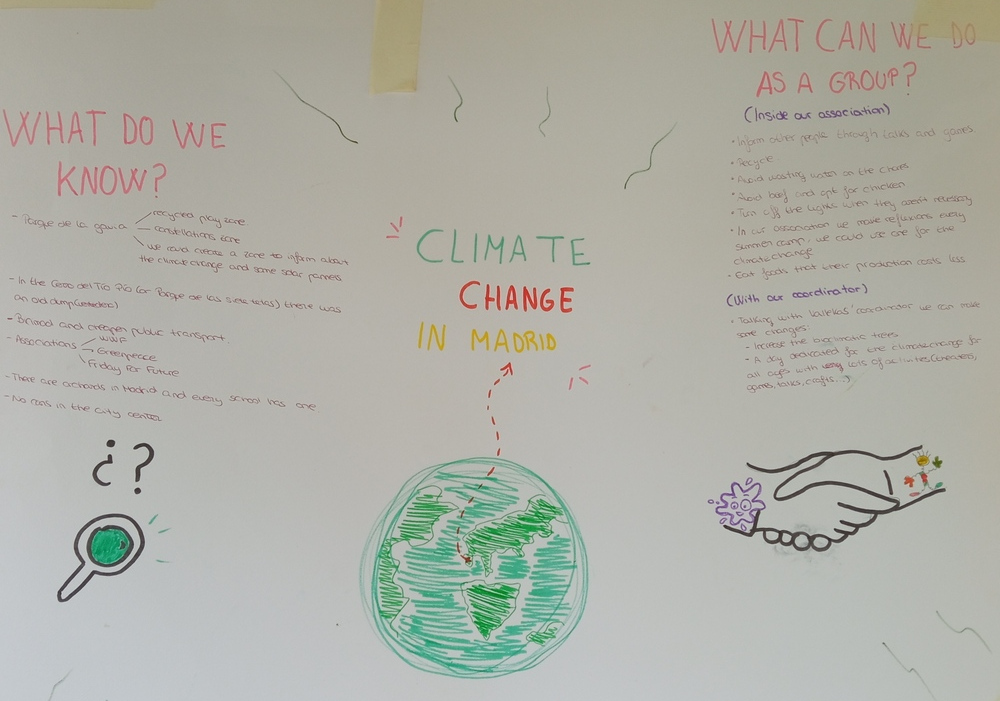 WHAT DO WE
KNOW?
- Parque de la gavia
recycled play zone
constellations zone
we could create a zone to inform about
the climate change and some solar panels
- In the Cerro del Tío Pío (or Parque de las siete tetas) there was
an old dump
- Bicimad and cheaper public transport.
- Associations
WWF
Greenpeace
Friday For Future
- There are orchards in Madrid and every school has one
- No cars in the city center
¿?
CLIMATE
CHANGE
IN MADRID
WHAT CAN WE DO
AS A GROUP?
(Inside our association)
• Inform other people through talks and games.
• Recycle
• Avoid wasting water on the chores
• Avoid beef and opt for chicken
• Turn off the lights when they aren't necessary
• In our association we make reflexions every
summer camp, we could use one for the
climate change
• Eat foods that their production costs less
(With our coordinator)
• Talking with Vallekas' coordinator we can make
some changes:
- Increase the bioclimatic trees
- A day dedicated for the climate change for
all ages with lots of activities (theaters,
games, talks, crafts...)